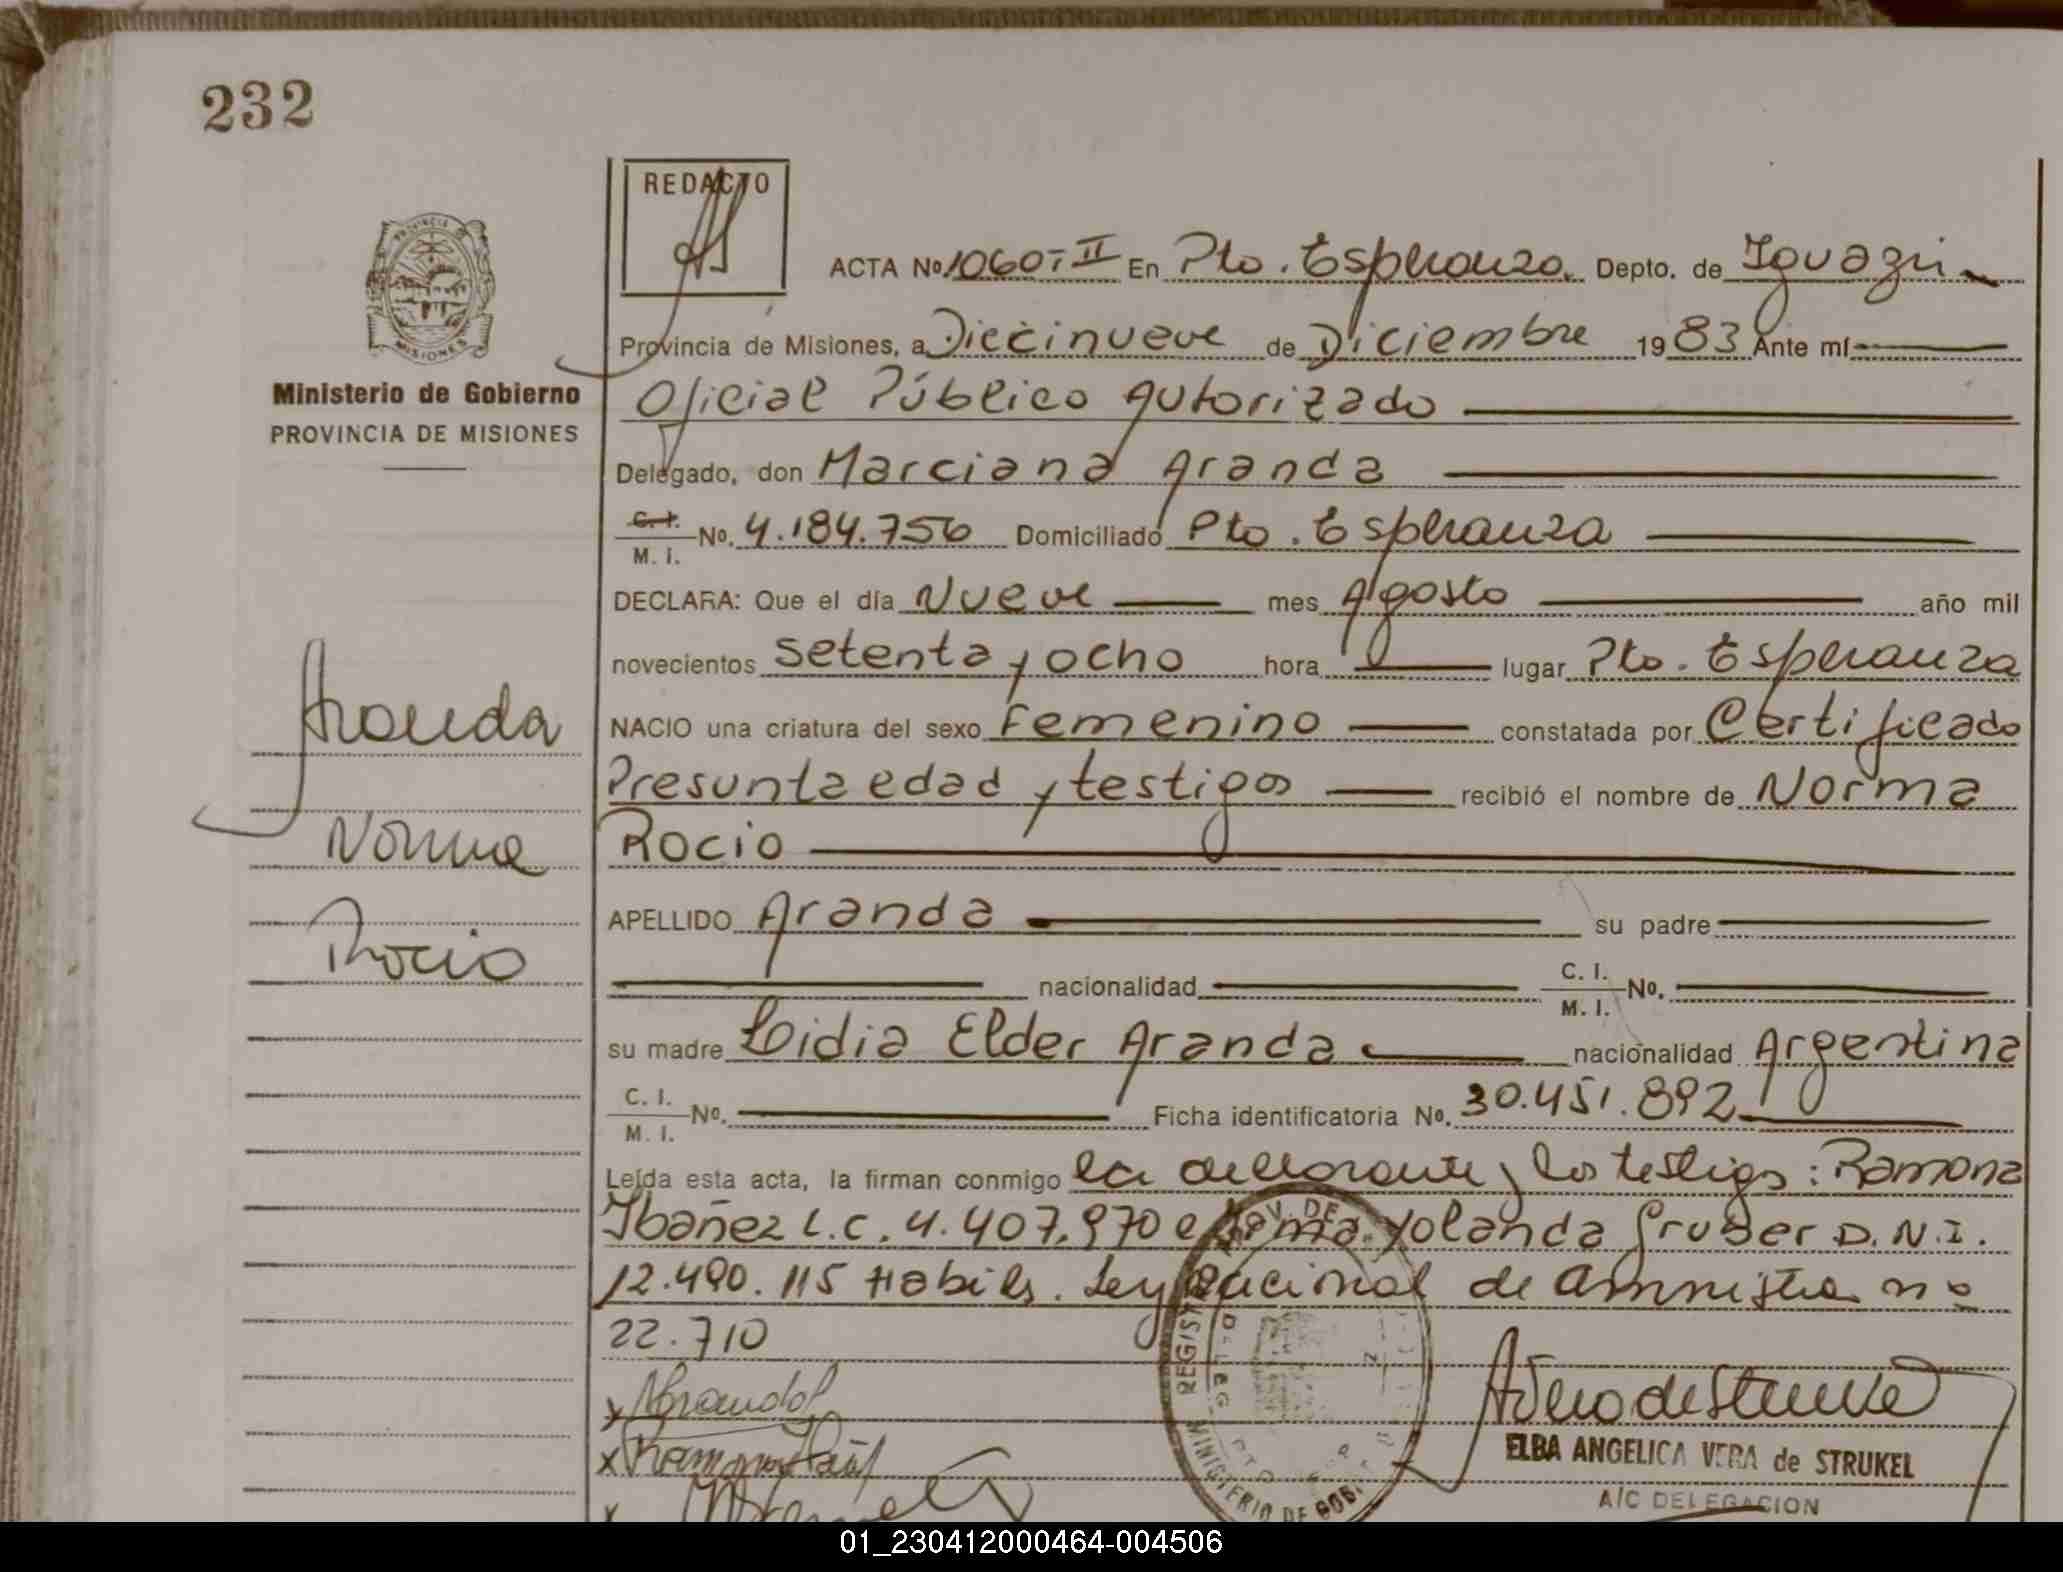 232
REDACTO
PROVINCIA DE
MISIONES
Ministerio de Gobierno
PROVINCIA DE MISIONES
ACTA No 1060-T-II En Pto. Esperanza. Depto. de Iguazú
Provincia de Misiones, a Diecinueve de Diciembre 1983 Ante mí
Oficial Público Autorizado
Delegado, don Marciana Aranda
C. I. M. I. No. 4.184.756 Domiciliado Pto. Esperanza
DECLARA: Que el día Nueve mes Agosto año mil
novecientos setenta y ocho hora lugar Pto. Esperanza
NACIO una criatura del sexo Femenino constatada por Certificado
Presunta edad y testigos recibió el nombre de Norma
Rocio
APELLIDO Aranda su padre
nacionalidad C. I. M. I. No.
su madre Lidia Elder Aranda nacionalidad Argentina
C. I. M. I. No. Ficha identificatoria No. 30.451.892
Leída esta acta, la firman conmigo la declarante y los testigos: Ramona
Ibañez L.C. 4.407.970 e Yolanda Gruber D.N.I.
12.490.115 Habiles. Ley Nacional de Amnistia no
22.710
Aranda
Norma
Rocio
ELBA ANGELICA VERA de STRUKEL
A/C DELEGACION
PROV. DE
REGISTR
MINISTERIO DE GOB.
01_230412000464-004506